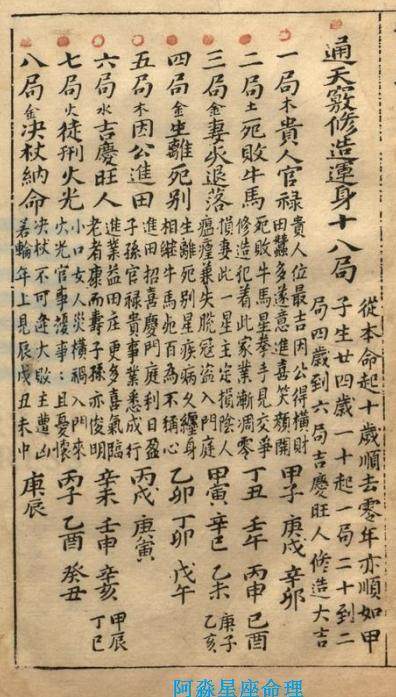 通天竅修造運身十八局
從本命起十歲順去零年亦順如甲
子生廿四歲一十起一局二十到二
局四歲到六局吉慶旺人修造大吉
一局木貴人官祿
貴人位最吉因公得橫財
田蠶多遂意進喜笑顏開
甲子 庚戌 辛卯
二局土死敗牛馬
死敗牛馬星拳手見交爭
修造犯着此家業漸凋零
丁丑 壬午 丙申 己酉
三局金妻亡退落
損妻此一星主定損陰人
瘟瘟兼失脫冠盗入門庭
甲寅 辛巳 乙未 庚子 乙亥
四局金生離死别
生離死别星疾病久纏身
相继牛馬死百為不稱心
乙卯 丁卯 戊午
五局木因公進田
進田招喜慶門庭利日盈
子孫官祿貴事業悉成行
丙戌 庚寅
六局水吉慶旺人
進業益田庄更多喜氣臨
老者康而壽子孫亦俊明
辛未 壬申 辛亥 甲辰 丁巳
七局火徒刑火光
小口女人災橫禍入門來
火光官事事且憂懷
丙子 乙酉 癸丑
八局金决杖納命
决杖不可逢大敗主遭凶
若輪年上見辰戌丑未中
庚辰
阿淼星座命理